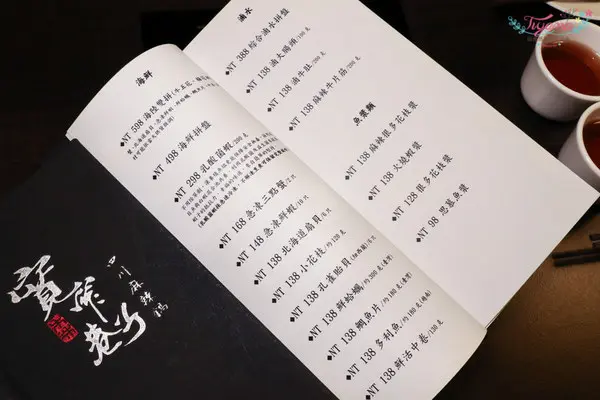 海鮮
◆NT 598 海陸雙拼
◆NT 498 海鮮拼盤
◆NT 298 乳酸菌蝦/200克
◆NT 168 急凍三點蟹/2只
◆NT 148 急凍鮮蝦
◆NT 138 北海道扇貝
◆NT 138 小花枝/約120克
◆NT 138 孔雀貽貝
◆NT 138 鮮蛤蠣/約300克
◆NT 138 鯛魚片/約180克
◆NT 138 多利魚/約180克
◆NT 138 鮮活中卷/150克
滷水
◆NT 388 綜合滷水拼盤
◆NT 138 滷大腸頭/100克
◆NT 138 滷牛肚/200克
◆NT 138 麻辣牛片筋/200克
魚漿類
◆NT 138 麻辣很多花枝漿
◆NT 138 大塊蝦漿
◆NT 128 很多花枝漿
◆NT 98 思慕魚漿
寬庭巷子
四川麻辣鍋